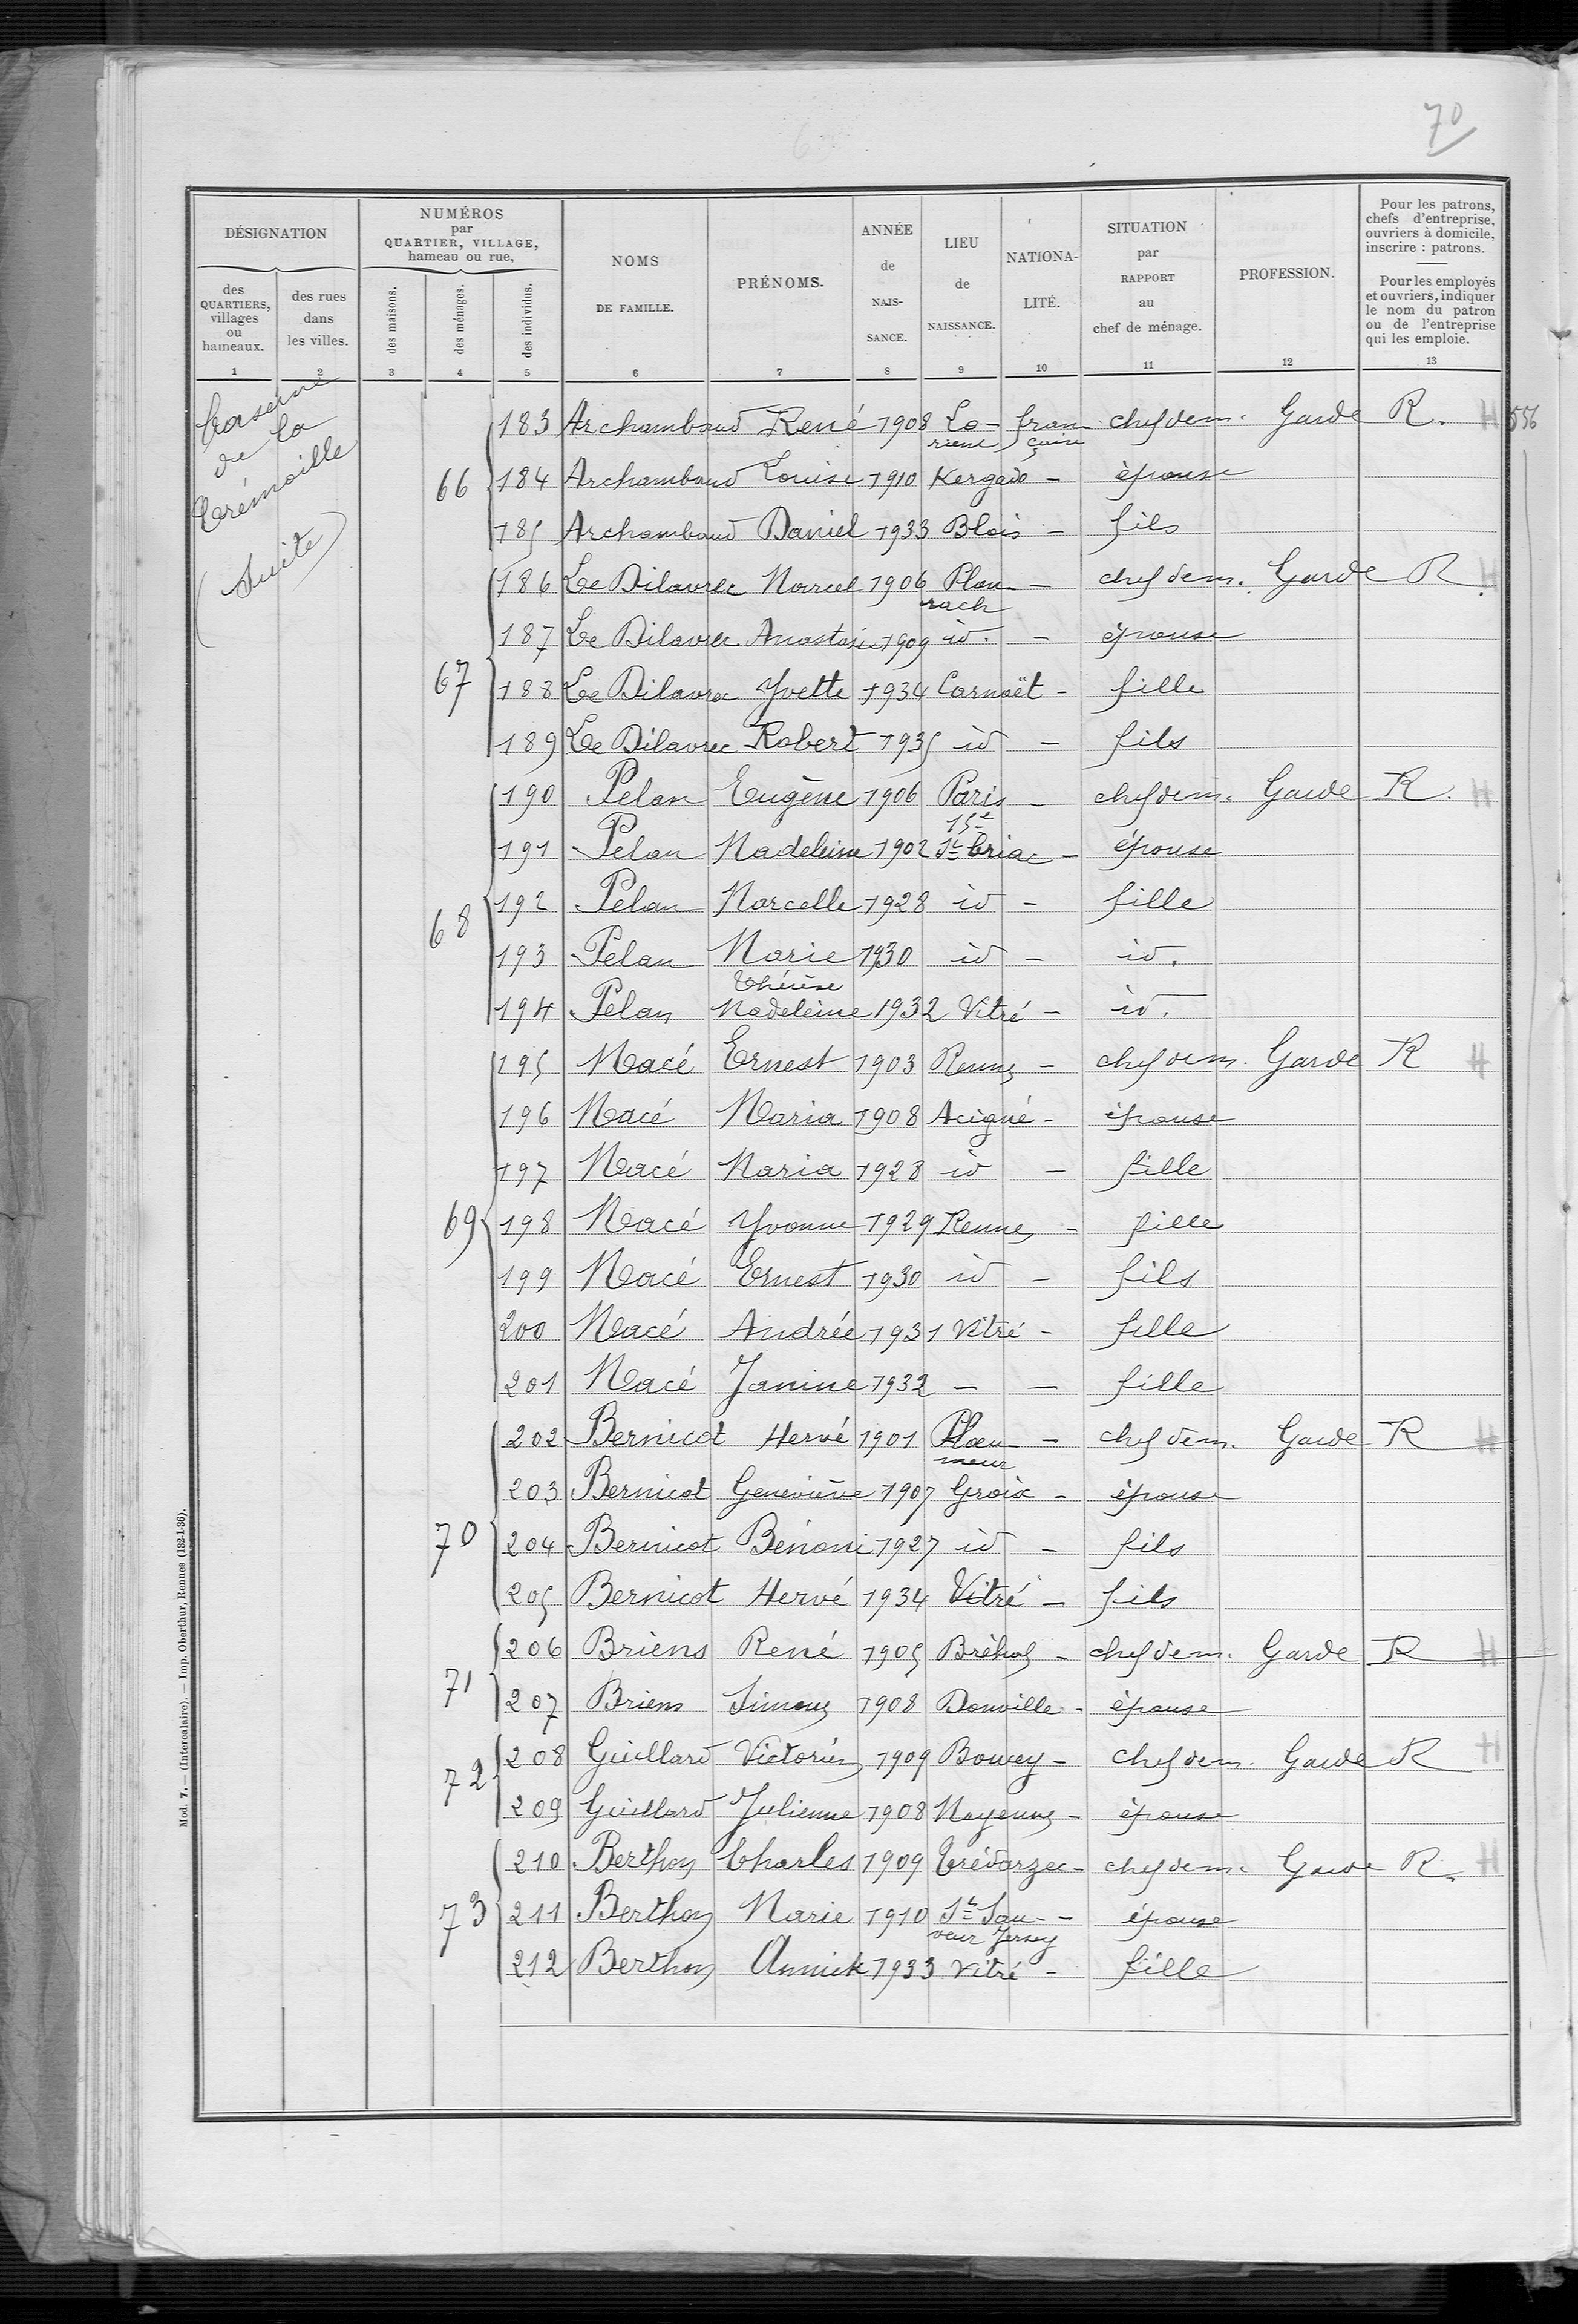 70
DÉSIGNATION
NUMÉROS
par
QUARTIER, VILLAGE,
hameau ou rue,
des
QUARTIERS,
villages
ou
hameaux.
des rues
dans
les villes.
des maisons.
des ménages.
des individus.
NOMS
DE FAMILLE.
PRÉNOMS.
ANNÉE
de
NAIS-
SANCE.
LIEU
de
NAISSANCE.
NATIONA-
LITÉ.
SITUATION
par
RAPPORT
au
chef de ménage.
PROFESSION.
Pour les patrons,
chefs d'entreprise,
ouvriers à domicile,
inscrire : patrons.
Pour les employés
et ouvriers, indiquer
le nom du patron
ou de l'entreprise
qui les emploie.
1 2 3 4 5 6 7 8 9 10 11 12 13
Caserne
de la
Trémoille
(Suite)
183 Archambaud René 1908 Lo-rient française chef de m. Garde R. H 556
66 184 Archambaud Louise 1910 - épouse
185 Archambaud Daniel 1933 Blois - fils
186 Le Dilavrec Marcel 1906 Plourach - chef de m. Garde R H
187 Le Dilavrec Anastasie 1909 id. - épouse
67 188 Le Dilavrec Yvette 1934 Carnoët - fille
189 Le Dilavrec Robert 1935 id - fils
190 Pelan Eugène 1906 Paris 15e - chef de m. Garde R. H
191 Pelan Madeleine 1902 St Briac - épouse
68 192 Pelan Marcelle 1928 id - fille
193 Pelan Marie Thérèse 1930 id - id.
194 Pelan Madeleine 1932 Vitré - id.
195 Macé Ernest 1903 Rennes - chef de m. Garde R H
196 Macé Maria 1908 Acigné - épouse
197 Macé Maria 1928 id - fille
69 198 Macé Yvonne 1929 Rennes - fille
199 Macé Ernest 1930 id - fils
200 Macé Andrée 1931 Vitré - fille
201 Macé Janine 1932 - - fille
202 Bernicot Hervé 1901 Ploemeur - chef de m. Garde R H
203 Bernicot Geneviève 1907 Groix - épouse
70 204 Bernicot Bénoni 1927 id - fils
205 Bernicot Hervé 1934 Vitré - fils
206 Briens René 1905 Bréhal - chef de m. Garde R H
71 207 Briens Simone 1908 Donville - épouse
72 208 Guillard Victorien 1909 Boucey - chef de m. Garde R H
209 Guillard Julienne 1908 Mayenne - épouse
210 Berthou Charles 1909 Trédarzec - chef de m. Garde R. H
73 211 Berthou Marie 1910 St Sauveur Jersey - épouse
212 Berthou Annick 1933 Vitré - fille
Mod. 7. — (Intercalaire). — Imp. Oberthur, Rennes (132-1-36).